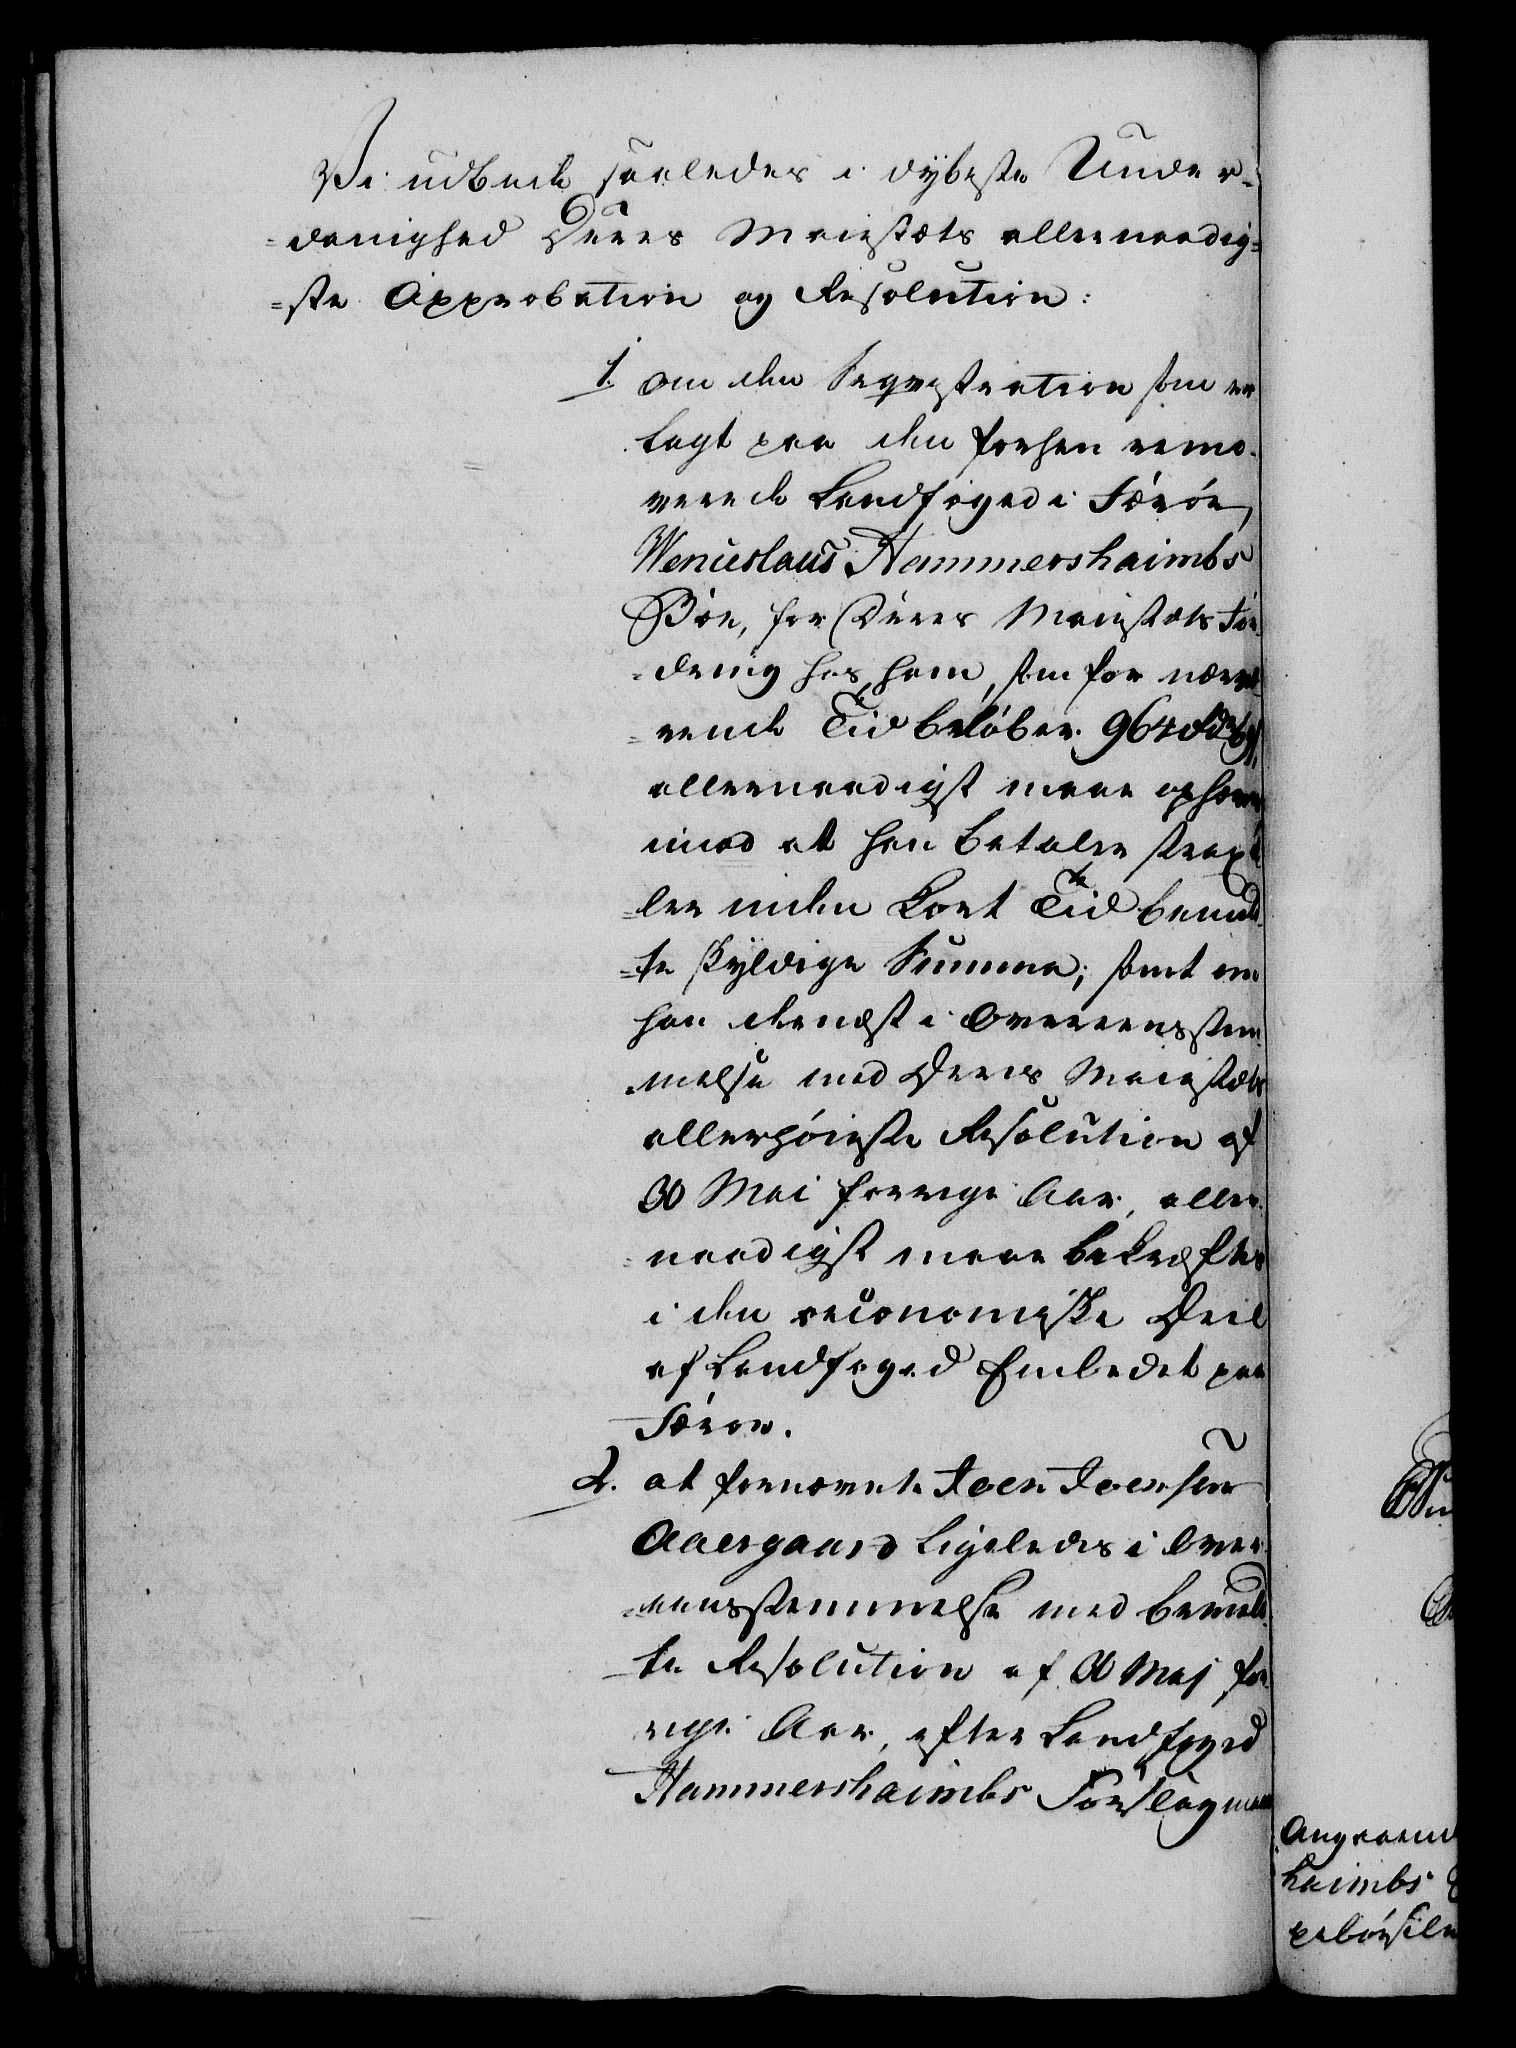 Vi udbede saaledes i dybeste Under-
=danighed Deres Maiestæts allernaadig=
=ste Approbation og Resolution:
1. om den Seqvestration som er
lagt paa den forhen remo-
verede Landfoged i Færöe,
Wenceslaus Hammershaimbs
Böe, for Deres Maiestæts For-
=dring hos ham, som for nærvæ
=rende Tid belöber 964 rd
allernaadigst maae ophæves
imod at han betaler strax el
=ler inden kort Tid bemeld-
=te skyldige Summa; samt om
han dernæst i Overeensstem-
=melse med Deres Maiestæts
allerhöieste Resolution af
30 Mai forrige Aar, aller-
=naadigst maae bekræftes
i den oeconomiske Deel
af Landfoged Embedet paa
Færöe.
2. at fornævnte Joen Joensen
Aaergaard ligeledes i Over-
=eensstemmelse med bemeld-
te Resolution af 30 Maj for-
rige Aar, efter Landfoged
Hammershaimbs Forslag maae
haimbs